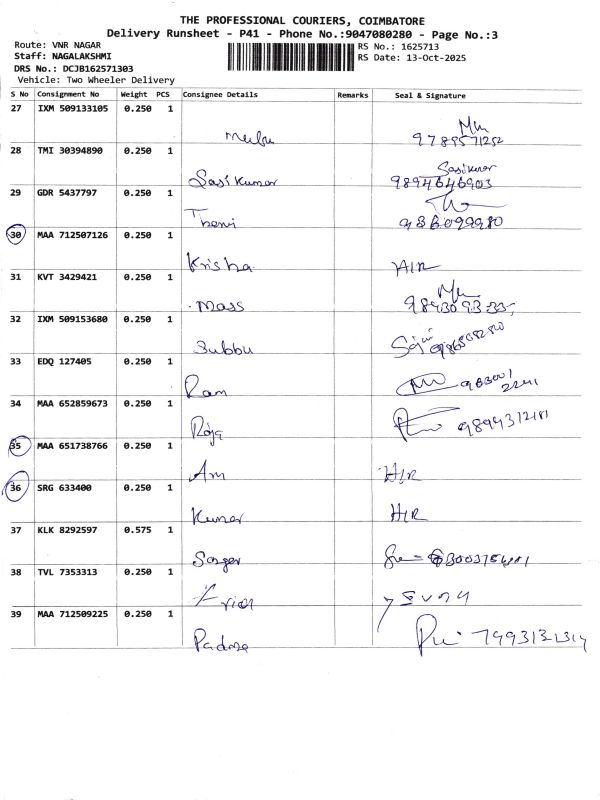 THE PROFESSIONAL COURIERS, COIMBATORE
Delivery Runsheet - P41 - Phone No.:9047080280 - Page No.:3
Route: VNR NAGAR RS No.: 1625713
Staff: NAGALAKSHMI RS Date: 13-Oct-2025
DRS No.: DCJB162571303
Vehicle: Two Wheeler Delivery
S No Consignment No Weight PCS Consignee Details Remarks Seal & Signature
27 IXM 509133105 0.250 1
28 TMI 30394890 0.250 1
Sasikumar Sasikumar
9894646903
29 GDR 5437797 0.250 1
30 MAA 712507126 0.250 1
Krisha H/R
31 KVT 3429421 0.250 1
Mass
32 IXM 509153680 0.250 1
Subbu
33 EDQ 127405 0.250 1
Ram
34 MAA 652859673 0.250 1
Roja 9894312181
35 MAA 651738766 0.250 1
H/R
36 SRG 633400 0.250 1
Kumar H/R
37 KLK 8292597 0.575 1
38 TVL 7353313 0.250 1
39 MAA 712509225 0.250 1
Padma